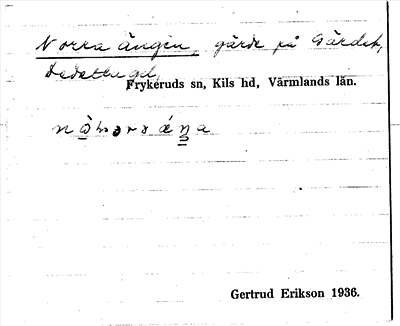 Norra ängen, gärde på Gärdet,
Frykeruds sn, Kils hd, Värmlands län.
Gertrud Erikson 1936.